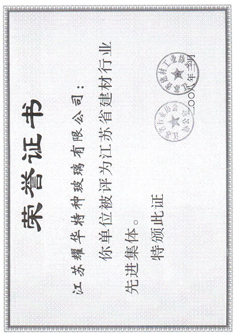 荣誉证书
江苏耀华特种玻璃有限公司：
你单位被评为江苏省建材行业
先进集体。
特颁此证